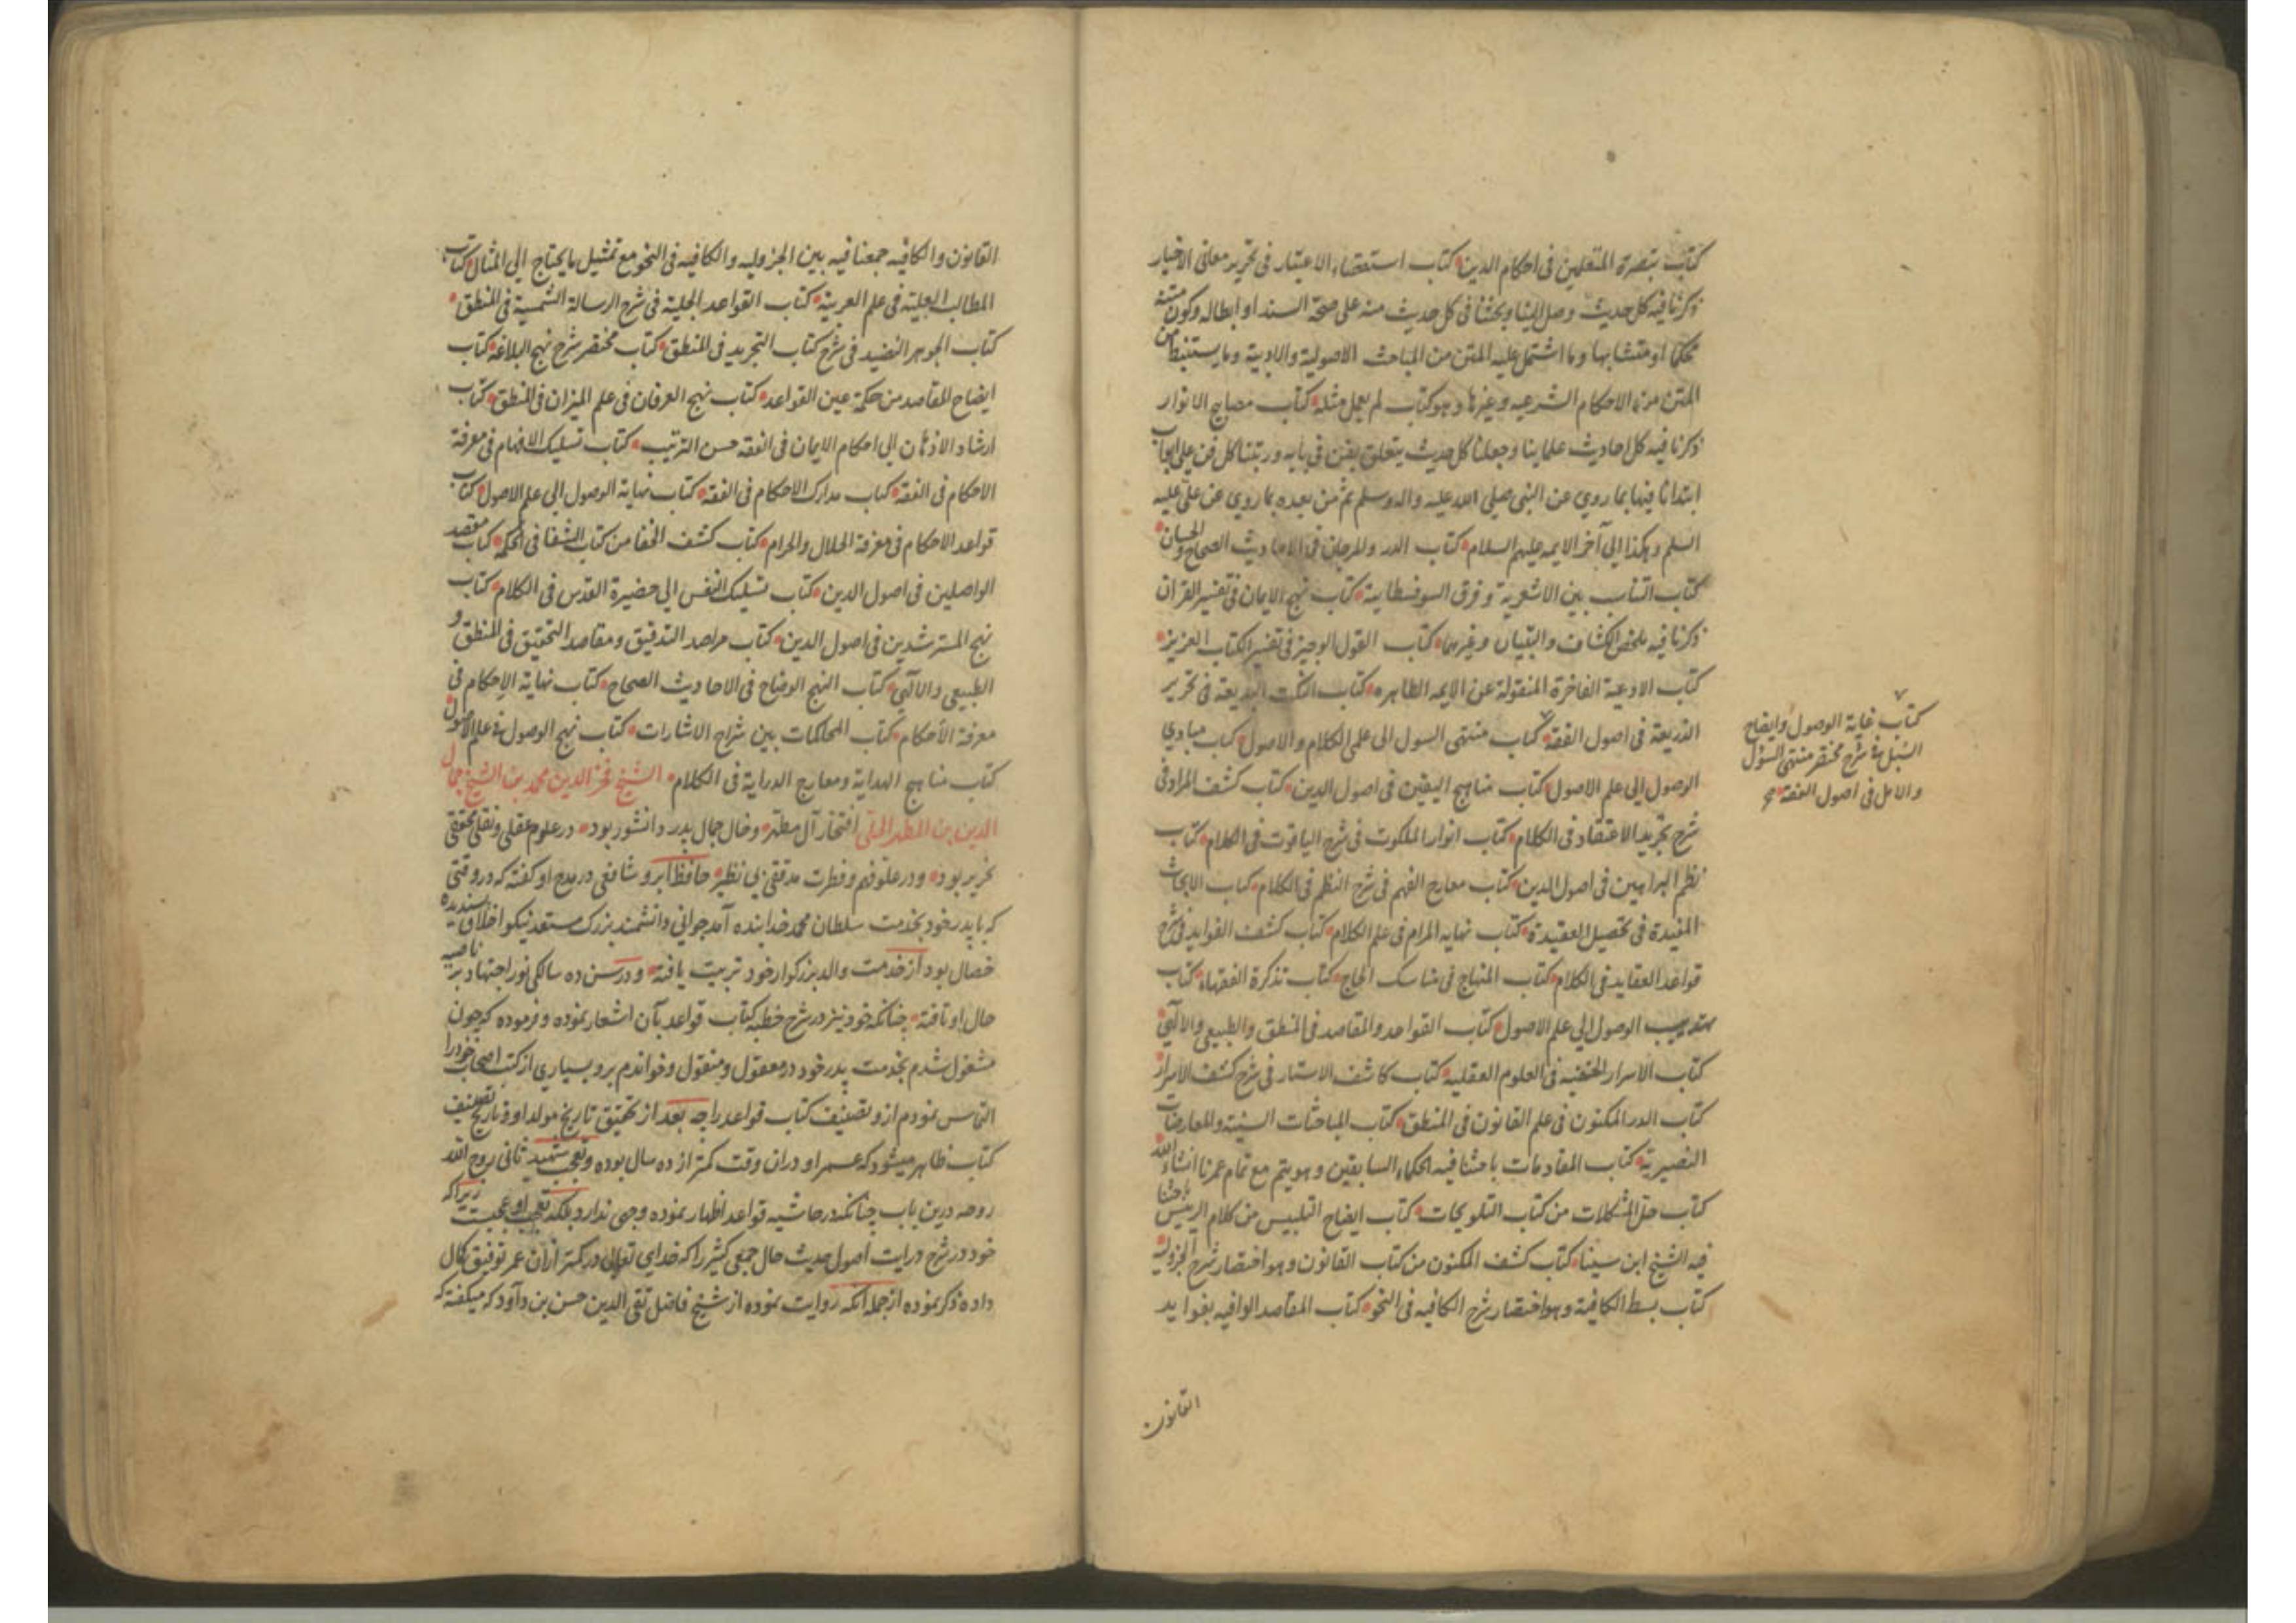 كتاب تبصرة المتعلمين فى احكام الدين كتاب استقصاء الاعتبار فى تحرير معانى الاخبار
ذكرنا فيه كل حديث وصل الينا وبحثنا فى كل حديث منه على صحة السند او ابطاله وكون متنه
محكما او متشابها وما اشتمل عليه المتن من المباحث الاصولية والادبية وما يستنبط من
المتن من الاحكام الشرعيه وغيرها وهو كتاب لم يعمل مثله كتاب مصابيح الانوار
ذكرنا فيه كل احاديث علماينا وجعلنا كل حديث يتعلق بفن فى بابه ورتبنا كل فن على ابواب
ابتدانا فيها بما روي عن النبى صلى الله عليه واله وسلم ثم من بعده بما روي عن علىّ عليه
السلم وهكذا الى آخر الايمه عليهم السلام كتاب الدر والمرجان فى الاحاديث الصحاح والحسان
كتاب التناسب بين الاشعرية وفرق السوفسطاييه كتاب نهج الايمان فى تفسير القران
ذكرنا فيه ملخص الكشاف والتبيان وغيرهما كتاب القول الوجيز فى تفسير الكتاب العزيز
كتاب الادعية الفاخرة المنقولة عن الايمه الطاهره كتاب النكت البديعة فى تحرير
الذريعة فى اصول الفقه كتاب منتهى السول الى علمى الكلام والاصول كتاب مبادي
الوصول الى علم الاصول كتاب مناهج اليقين فى اصول الدين كتاب كشف المراد فى
شرح تجريد الاعتقاد فى الكلام كتاب انوار الملكوت فى شرح الياقوت فى الكلام كتاب
نظم البراهين فى اصول الدين كتاب معارج الفهم فى شرح النظم فى الكلام كتاب الابحاث
المفيدة فى تحصيل العقيدة كتاب نهايه المرام فى علم الكلام كتاب كشف الفوايد فى شرح
قواعد العقايد فى الكلام كتاب المنهاج فى مناسك الحاج كتاب تذكرة الفقهاء كتاب
تهذيب الوصول الى علم الاصول كتاب القواعد والمقاصد فى المنطق والطبيعى والالهى
كتاب الاسرار الخفيه فى العلوم العقليه كتاب كاشف الاستار فى شرح كشف الاسرار
كتاب الدر المكنون فى علم القانون فى المنطق كتاب المباحثات السنية والمعارضات
النصيرية كتاب المقاومات باحثنا فيه الحكماء السابقين وهو يتم مع تمام عمرنا انشاء الله
كتاب حل المشكلات من كتاب التلويحات كتاب ايضاح التلبيس من كلام الرييس باحثنا
فيه الشيخ ابن سينا كتاب كشف المكنون من كتاب القانون وهو اختصار شرح الجزوليه
كتاب بسط الكافية وهو اختصار شرح الكافيه فى النحو كتاب المقاصد الوافيه بفوايد
القانون
كتاب غاية الوصول وايضاح
السبل فى شرح مختصر منتهى السؤل
والامل فى اصول الفقه صح
القانون والكافيه جمعنا فيه بين الجزوليه والكافيه فى النحو مع تمثيل ما يحتاج الى المثال كتاب
المطالب العلية فى علم العربية كتاب القواعد الجلية فى شرح الرسالة الشمسية فى المنطق
كتاب الجوهر النضيد فى شرح كتاب التجريد فى المنطق كتاب مختصر شرح نهج البلاغه كتاب
ايضاح المقاصد من حكمة عين القواعد كتاب نهج العرفان فى علم الميزان فى المنطق كتاب
ارشاد الاذهان الى احكام الايمان فى الفقه حسن الترتيب كتاب تسليك الافهام فى معرفة
الاحكام فى الفقه كتاب مدارك الاحكام فى الفقه كتاب نهاية الوصول الى علم الاصول كتاب
قواعد الاحكام فى معرفة الحلال والحرام كتاب كشف الخفا من كتاب الشفا فى الحكمه كتاب مقصد
الواصلين فى اصول الدين كتاب تسليك النفس الى حضيرة القدس فى الكلام كتاب
نهج المسترشدين فى اصول الدين كتاب مراصد التدقيق ومقاصد التحقيق فى المنطق و
الطبيعى والالهى كتاب النهج الوضاح فى الاحاديث الصحاح كتاب نهاية الاحكام فى
معرفة الاحكام كتاب المحاكمات بين شراح الاشارات كتاب نهج الوصول فى علم الاصول
كتاب مناهج الهداية ومعارج الدراية فى الكلام الشيخ فخر الدين محمد بن الشيخ جمال
الدين بن المطهر الحلى افتخار آل مطهر وخال جمال بدر دانشور بود در علوم عقلى ونقلى محققى
نحرير بود ودر علو فهم وفطرت مدققى بى نظير حافظ ابرو شافعى در مدح او كفته كه در وقتى
كه با پدر خود بخدمت سلطان محمد خدابنده آمد جوانى دانشمند بزرك مستعد نيكو اخلاق پسنديده
خصال بود از خدمت والد بزركوار خود تربيت يافته ودر سن ده سالكى نور اجتهاد بر ناصيه
حال او تافته چنانكه خود نيز در شرح خطبه كتاب قواعد بآن اشعار نموده وفرموده كه چون
مشغول شدم بخدمت پدر خود در معقول ومنقول وخواندم برو بسياري از كتب اصحاب خود را
التماس نمودم ازو تصنيف كتاب قواعد را چه بعد از تحقيق تاريخ مولد او وتاريخ تصنيف
كتاب ظاهر ميشود كه عمر او دران وقت كمتر از ده سال بوده وتعجب شهيد ثانى روح الله
روحه درين باب چنانكه در حاشيه قواعد اظهار نموده وجهى ندارد بلكه تعجب او عجبست زيرا كه
خود در شرح درايت اصول حديث حال جمعى كثير را كه خداي تعالى در كمتر ازان عمر توفيق كمال
داده ذكر نموده از جمله آنكه روايت نموده از شيخ فاضل تقى الدين حسن بن داود كه ميكفته كه